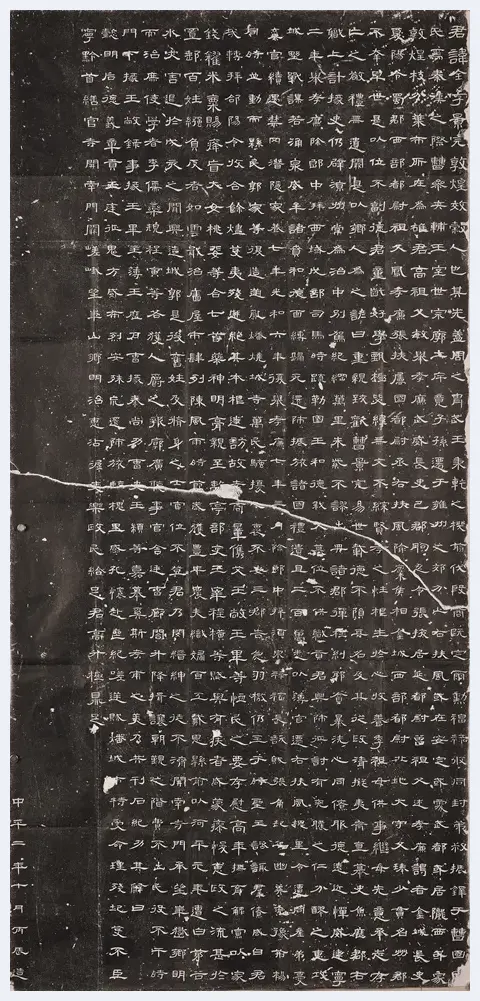 君諱全字景完敦煌效穀人也其先蓋周之胄武王秉乾之機翦伐殷商既定爾勳福祿攸同封弟叔振鐸于曹國因
氏焉秦漢之際曹參夾輔王室世宗廓土斥竟子孫遷于雍州之郊分止右扶風或在安定或處武都或居隴西或家
敦煌枝分葉布所在為雄君高祖父敏舉孝廉武威長史巴郡朐忍令張掖居延都尉曾祖父述孝廉謁者金城長史
夏陽令蜀郡西部都尉祖父鳳孝廉張掖屬國都尉丞右扶風隃麋侯相金城西部都尉北地大守父琫少貫名州郡
不幸早世是以位不副德君童齔好學甄極毖緯無文不綜賢孝之性根生於心收養季祖母供事繼母先意承志存
亡之敬禮無遺闕是以鄉人為之諺曰重親致歡曹景完易世載德不隕其名及其從政清擬夷齊直慕史魚歷郡右
職上計掾史仍辟涼州常為治中別駕紀綱萬里朱紫不謬出典諸郡彈枉糾邪貪暴洗心同僚服德遠近憚威建寧
二年舉孝廉除郎中拜西域戊部司馬時疏勒國王和德弒父篡位不供職貢君興師征討有兗膿之仁分醪之惠攻
城野戰謀若涌泉威牟諸賁和德面縛歸死還師振旅諸國禮遺且二百萬悉以薄官遷右扶風槐里令遭同產弟憂
棄官續遇禁冈潛隱家巷七年光和六年復舉孝廉七年三月除郎中拜酒泉祿福長訞賊張角起兵幽冀兗豫荊楊
同時並動而縣民郭家等復造逆亂燔燒城寺萬民騷擾人裹不安三郡告急羽檄仍至于時聖主諮諏群僚咸曰君
哉轉拜郃陽令收合餘燼芟夷殘迸絕其本根遂訪故老商量儁艾王敞王畢等恤民之要存慰高年撫育鰥寡以家
錢糴米粟賜癃盲大女桃婓等合七首藥神明膏親至離亭部吏王宰程橫等賦與有疾者咸蒙瘳悛惠政之流甚於
置郵百姓繈負反者如雲戢治廧屋市肆列陳風雨時節歲獲豐年農夫織婦百工戴恩縣前以河平元年遭白茅谷
水災害退於戊亥之間興造城郭是後舊姓及脩身之士官位不登君乃閔縉紳之徒不濟開南寺門承望華嶽鄉明
而治庶使學者李儒欒規程寅等各獲人爵之報廓廣聽事官舍廷曹廊閣升降揖讓朝覲之階費不出民役不干時
門下掾王敞錄事掾王畢主薄王歷戶曹掾秦尚功曹史王顓等嘉慕奚斯考甫之美乃共刊石紀功其辭曰
懿明后德義章貢王庭征鬼方威布烈安殊荒還師旅臨槐里感孔懷赴喪紀嗟逆賊燔城市特受命理殘圮芟不臣
寧黔首繕官寺開南門闕嵯峨望華山鄉明治惠沾渥吏樂政民給足君高升極鼎足
中平二年十月丙辰造